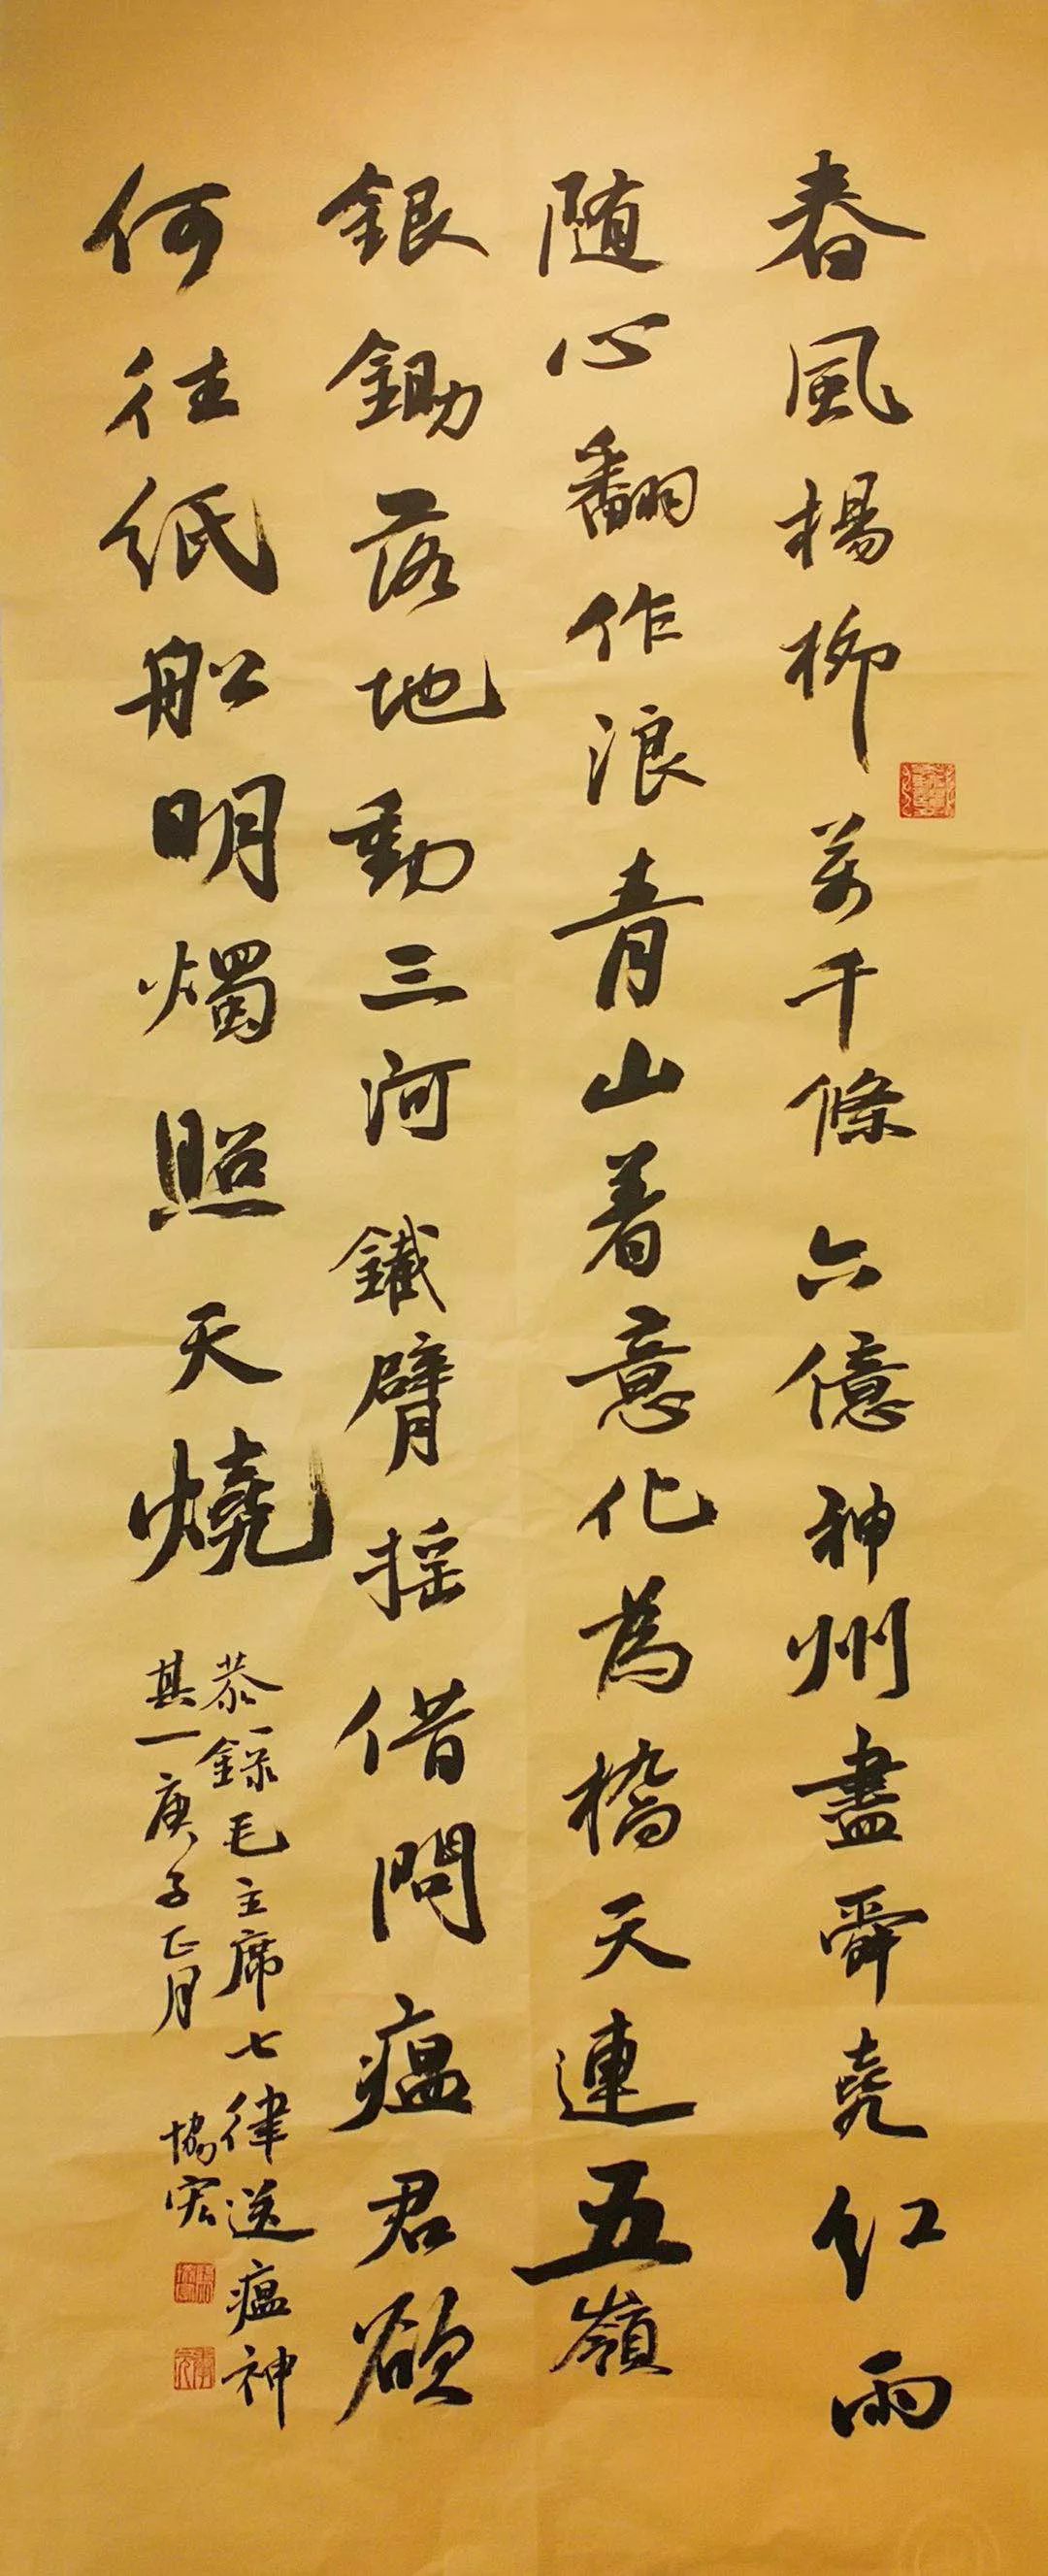 春風楊柳萬千條六億神州盡舜堯紅雨
随心翻作浪青山着意化為橋天連五嶺
銀鋤落地動三河鐵臂摇借問瘟君欲
何往紙船明燭照天燒
恭録毛主席七律送瘟神
其一庚子正月
協宏